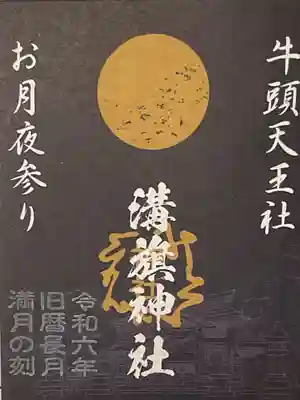 牛頭天王社
溝旗神社
お月夜参り
令和六年
旧暦長月
満月の刻